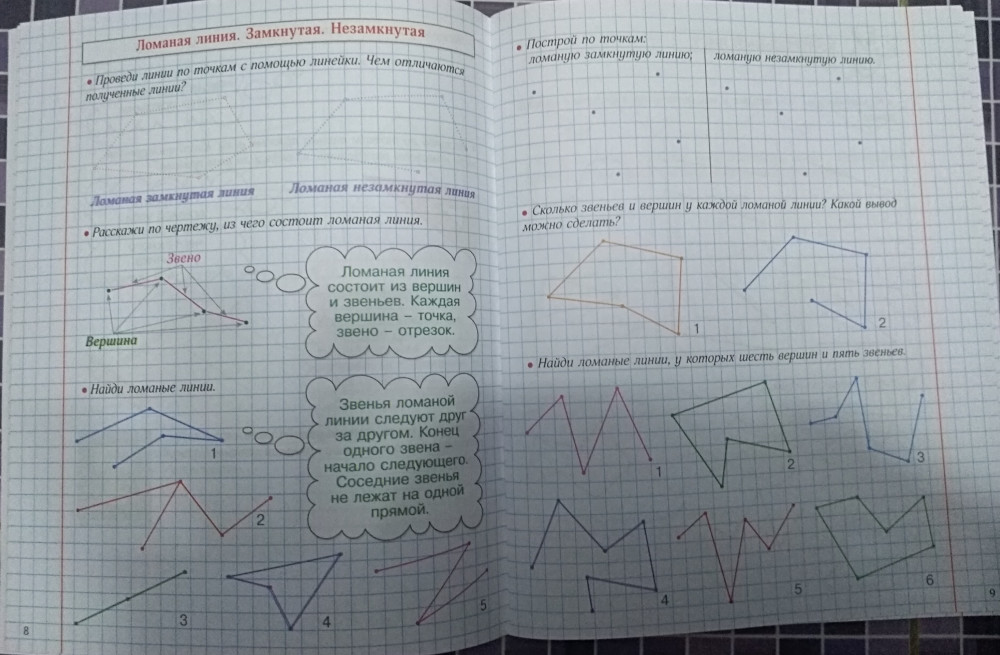 Ломаная линия. Замкнутая. Незамкнутая
• Проведи линии по точкам с помощью линейки. Чем отличаются
полученные линии?
Ломаная замкнутая линия
Ломаная незамкнутая линия
• Расскажи по чертежу, из чего состоит ломаная линия.
Звено
Вершина
Ломаная линия
состоит из вершин
и звеньев. Каждая
вершина – точка,
звено – отрезок.
• Найди ломаные линии.
1
2
3
4
5
Звенья ломаной
линии следуют друг
за другом. Конец
одного звена –
начало следующего.
Соседние звенья
не лежат на одной
прямой.
8
• Построй по точкам:
ломаную замкнутую линию;
ломаную незамкнутую линию.
• Сколько звеньев и вершин у каждой ломаной линии? Какой вывод
можно сделать?
1
2
• Найди ломаные линии, у которых шесть вершин и пять звеньев.
1
2
3
4
5
6
9